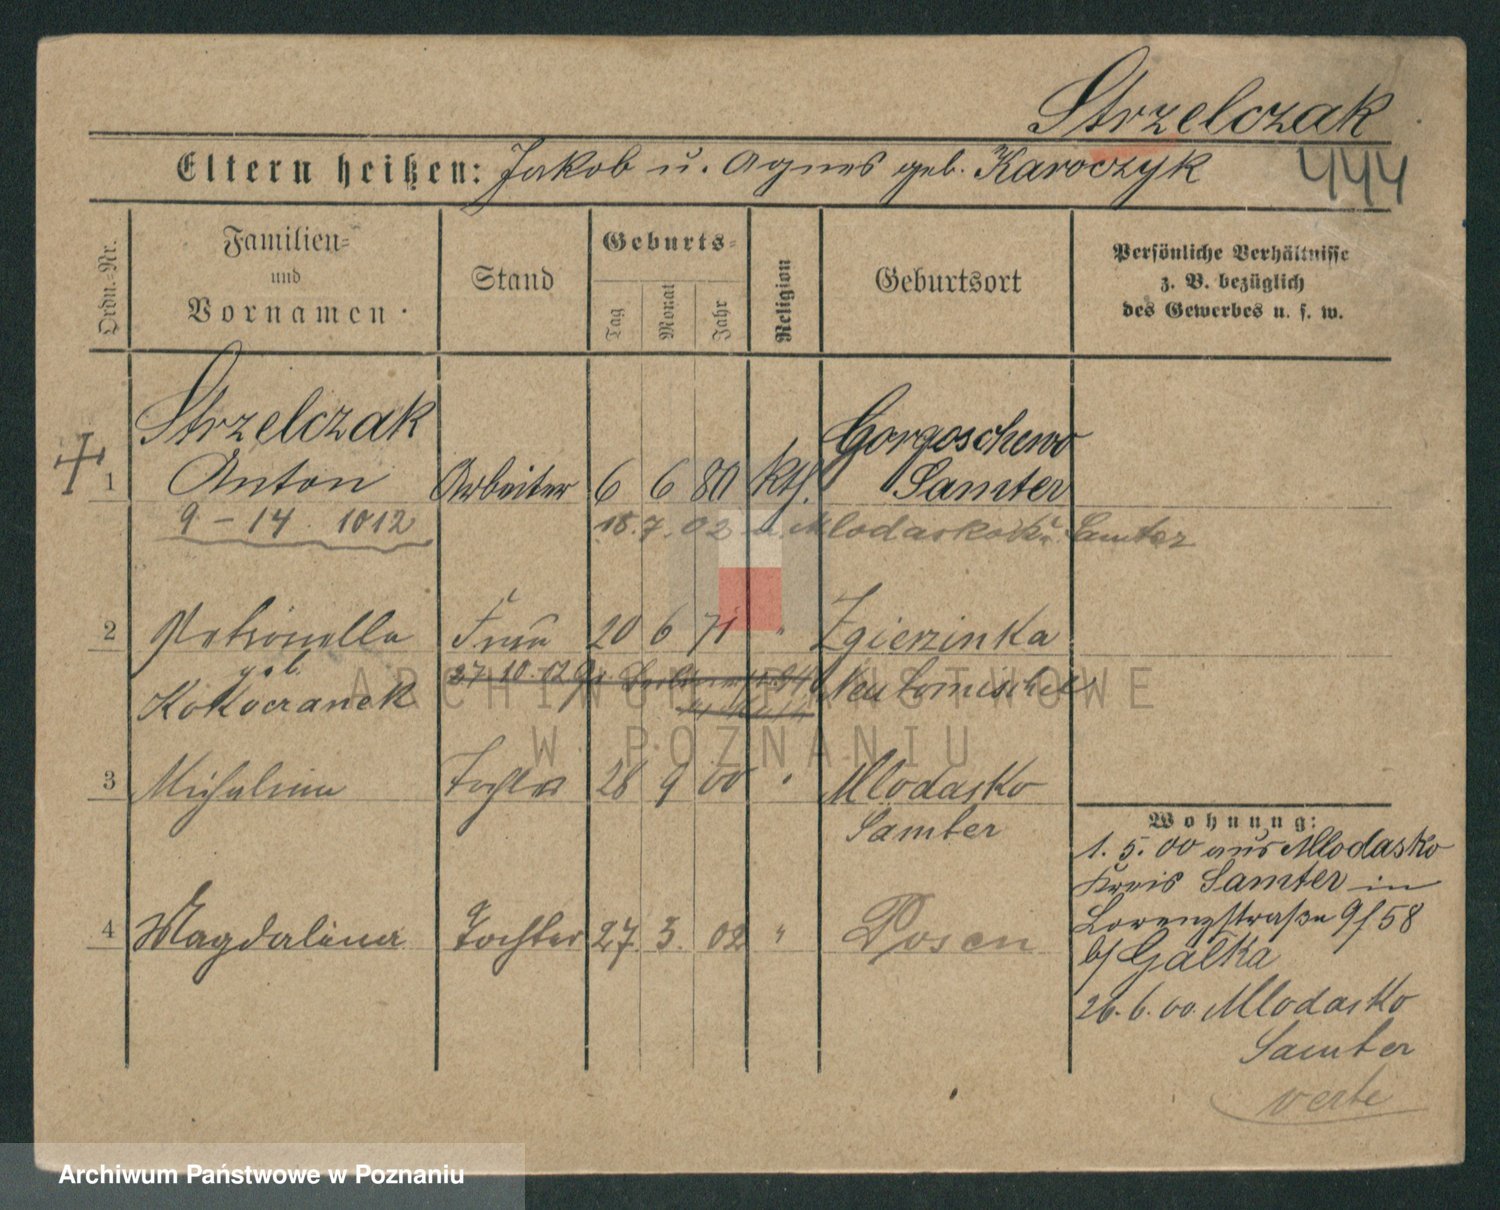 Strzelczak
Eltern heißen: Jakob u. Agnes geb. Karoczyk
444
Ordn.-Nr.
Familien-
und
Vornamen
Stand
Geburts-
Tag
Monat
Jahr
Religion
Geburtsort
Persönliche Verhältnisse
z. B. bezüglich
des Gewerbes u. s. w.
Strzelczak
1 Anton Arbeiter 6 6 80 kth. Gorgoschewo
Samter
9 - 14 1012
18.7.02 n. Mlodasko Kr. Samter
2 Petronella Frau 20 6 71 " Zgierzinka
geb.
Kokocranek
27.10.12
Neutomischel
3 Michalina Tochter 28 9 00 " Mlodasko
Samter
4 Magdalina Tochter 27. 5. 02 " Posen
Wohnung:
1. 5. 00 aus Mlodasko
Kreis Samter in
Lorenzstraße 9/58
b/ Galka
26. 6. 00. Mlodasko
Samter
verte
ARCHIWUM PAŃSTWOWE
W POZNANIU
Archiwum Państwowe w Poznaniu